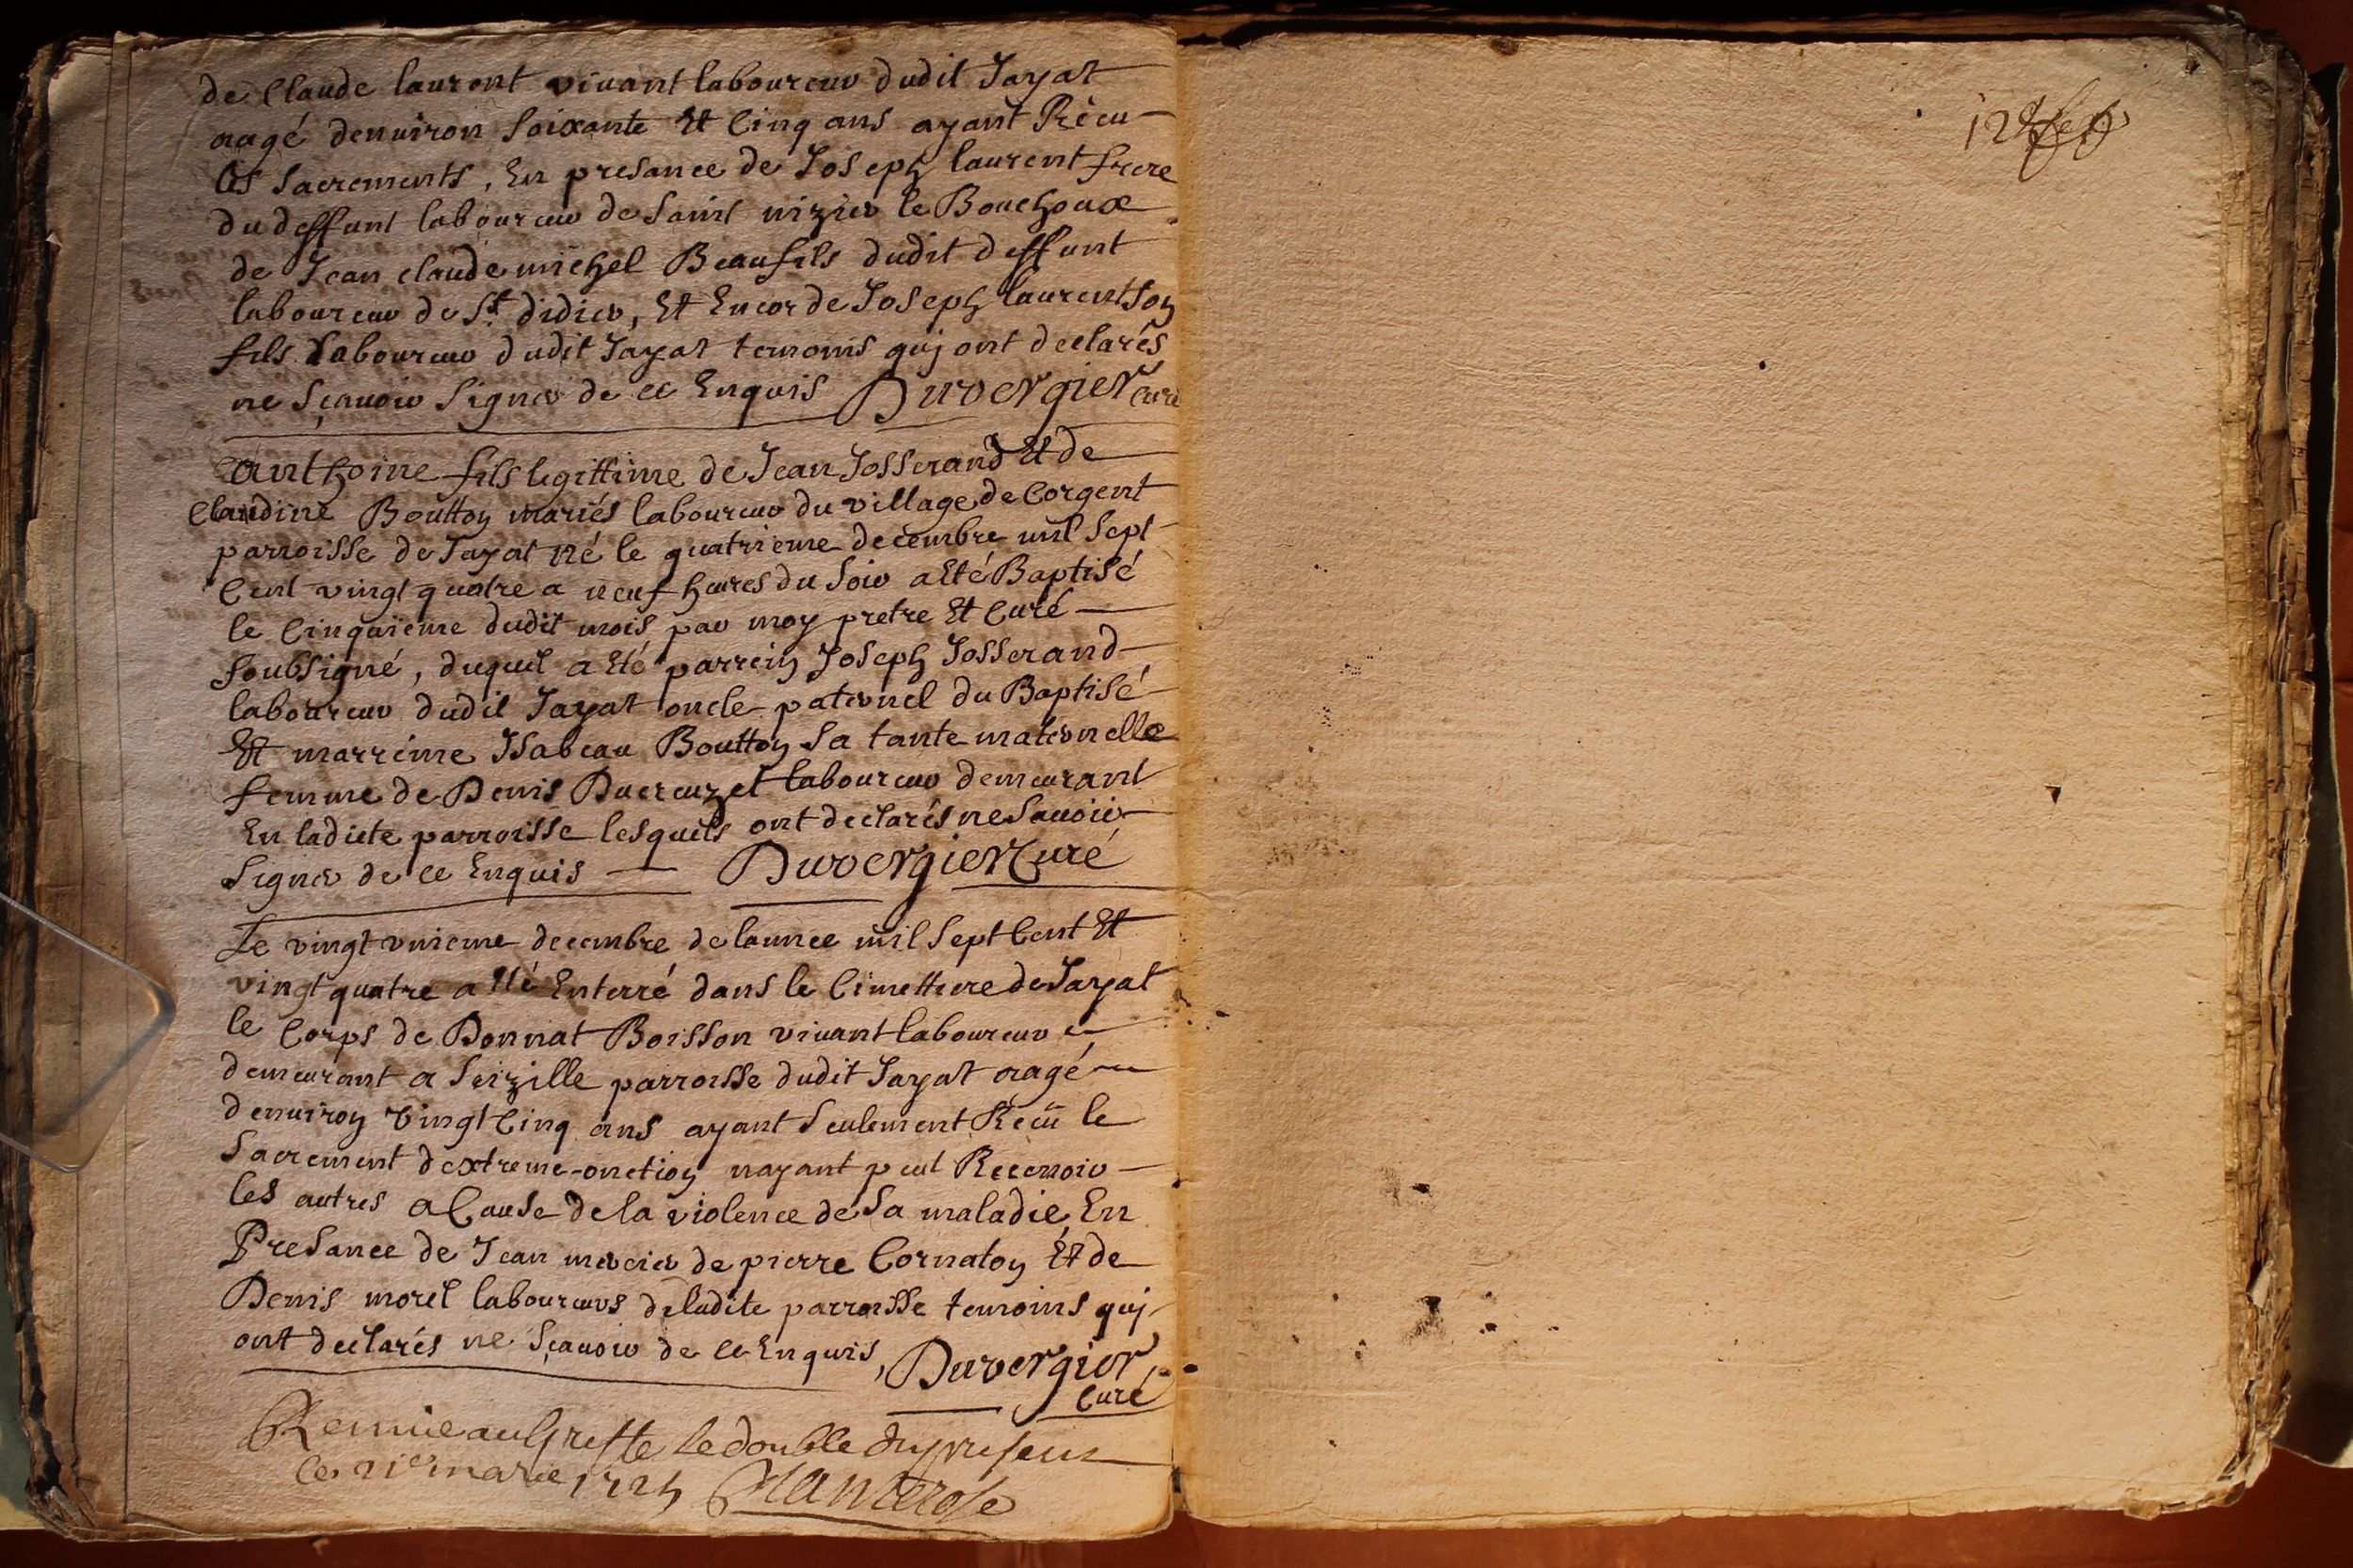 de Claude laurent vivant laboureur dudit Jayat
aagé denuiron soixante Et Cinq ans ayant Recu
les sacrements, En presance de Joseph laurent frere
du deffunt laboureur de saint nizier le Bouchoux
de Jean claude michel Beaufils dudit deffunt
laboureur de St didier, Et Encor de Joseph laurent son
fils laboureur dudit Jayat temoins quj ont declarés
ne sçauoir signer de ce Enquis Duvergier Curé
anthoine fils legittime de Jean Josserand Et de
Claudine Boutton mariés laboureur du village de Corgent
parroisse de Jayat né le quatrieme decembre mil sept
Cent vingt quatre a neuf heures du soir a Eté Baptisé
le Cinquieme dudit mois par moy pretre Et Curé
soubsigné, duquel a Eté parrein Joseph Josserand
laboureur dudit Jayat oncle paternel du Baptisé
Et marreine Isabeau Boutton sa tante maternelle
femme de Denis Ducruzet laboureur demeurant
En ladicte parroisse lesquels ont declarés ne sauoir
signer de ce Enquis Duvergier Curé
Le vingt vnieme decembre de lannee mil sept Cent Et
vingt quatre a Eté Enterré dans le Cimettiere de Jayat
le Corps de Donnat Boisson vivant laboureur
demeurant a seizille parroisse dudit Jayat aagé
denuiron vingt Cinq ans ayant seulement Recü le
sacrement dextreme-onction nayant peut Receuoir
les autres a Cause de la violence de sa maladie, En
Presance de Jean mercier de pierre Cornaton Et de
Denis morel laboureurs de ladite parroisse temoins quj
ont declarés ne sçauoir de ce Enquis, Duvergier
Curé
Remise au Greffe le double du present
le 21e mars 1725
12